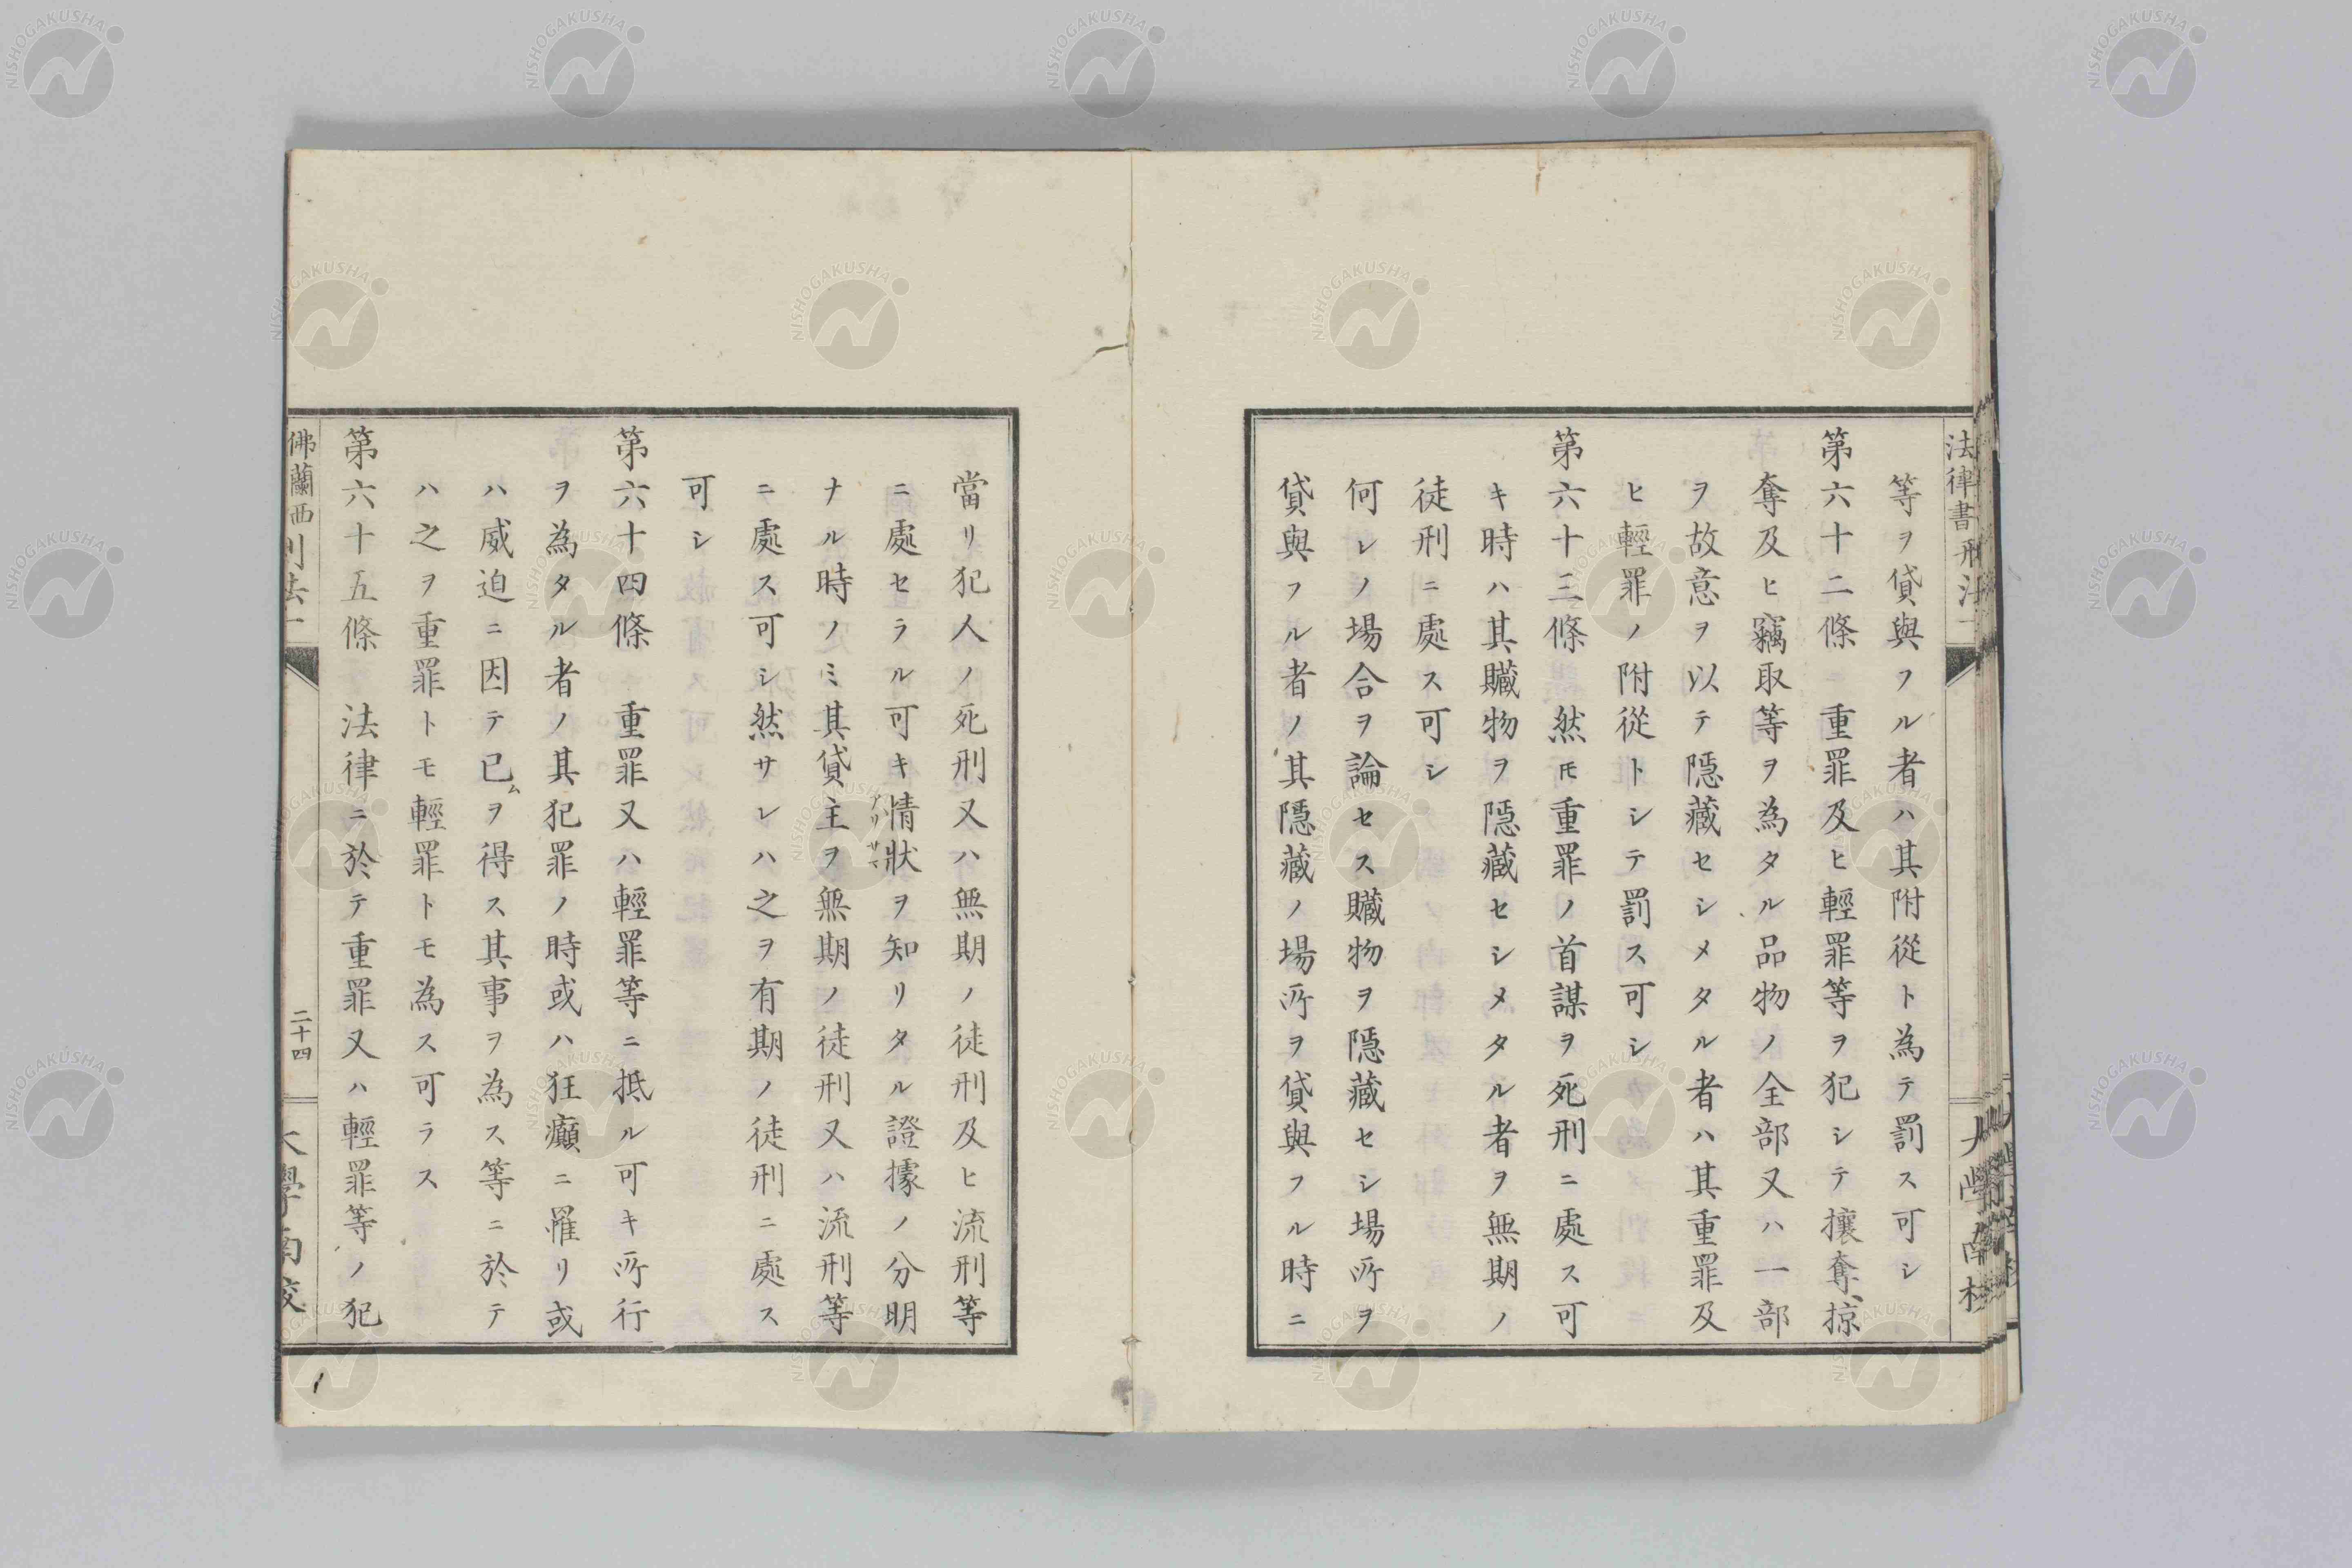 法律書刑法一
等ヲ貸與フル者ハ其附從ト為テ罰ス可シ
第六十二條 重罪及ヒ輕罪等ヲ犯シテ攘奪掠
奪及ヒ竊取等ヲ為タル品物ノ全部又ハ一部
ヲ故意ヲ以テ隱藏セシメタル者ハ其重罪及
ヒ輕罪ノ附從トシテ罰ス可シ
第六十三條 然𪜈重罪ノ首謀ヲ死刑ニ處ス可
キ時ハ其贓物ヲ隱藏セシメタル者ヲ無期ノ
徒刑ニ處ス可シ
何レノ場合ヲ論セス贓物ヲ隱藏セシ場所ヲ
貸與フル者ノ其隱藏ノ場所ヲ貸與フル時ニ
當リ犯人ノ死刑又ハ無期ノ徒刑及ヒ流刑等
ニ處セラル可キ情狀ヲ知リタル證據ノ分明
アリサマ
ナル時ノミ其貸主ヲ無期ノ徒刑又ハ流刑等
ニ處ス可シ然サレハ之ヲ有期ノ徒刑ニ處ス
可シ
第六十四條 重罪又ハ輕罪等ニ抵ル可キ所行
ヲ為タル者ノ其犯罪ノ時或ハ狂癲ニ罹リ或
ハ威迫ニ因テ已ムヲ得ス其事ヲ為ス等ニ於テ
ハ之ヲ重罪トモ輕罪トモ為ス可ラス
第六十五條 法律ニ於テ重罪又ハ輕罪等ノ犯
佛蘭西刑法一
二十四
大學南校
NISHOGAKUSHA